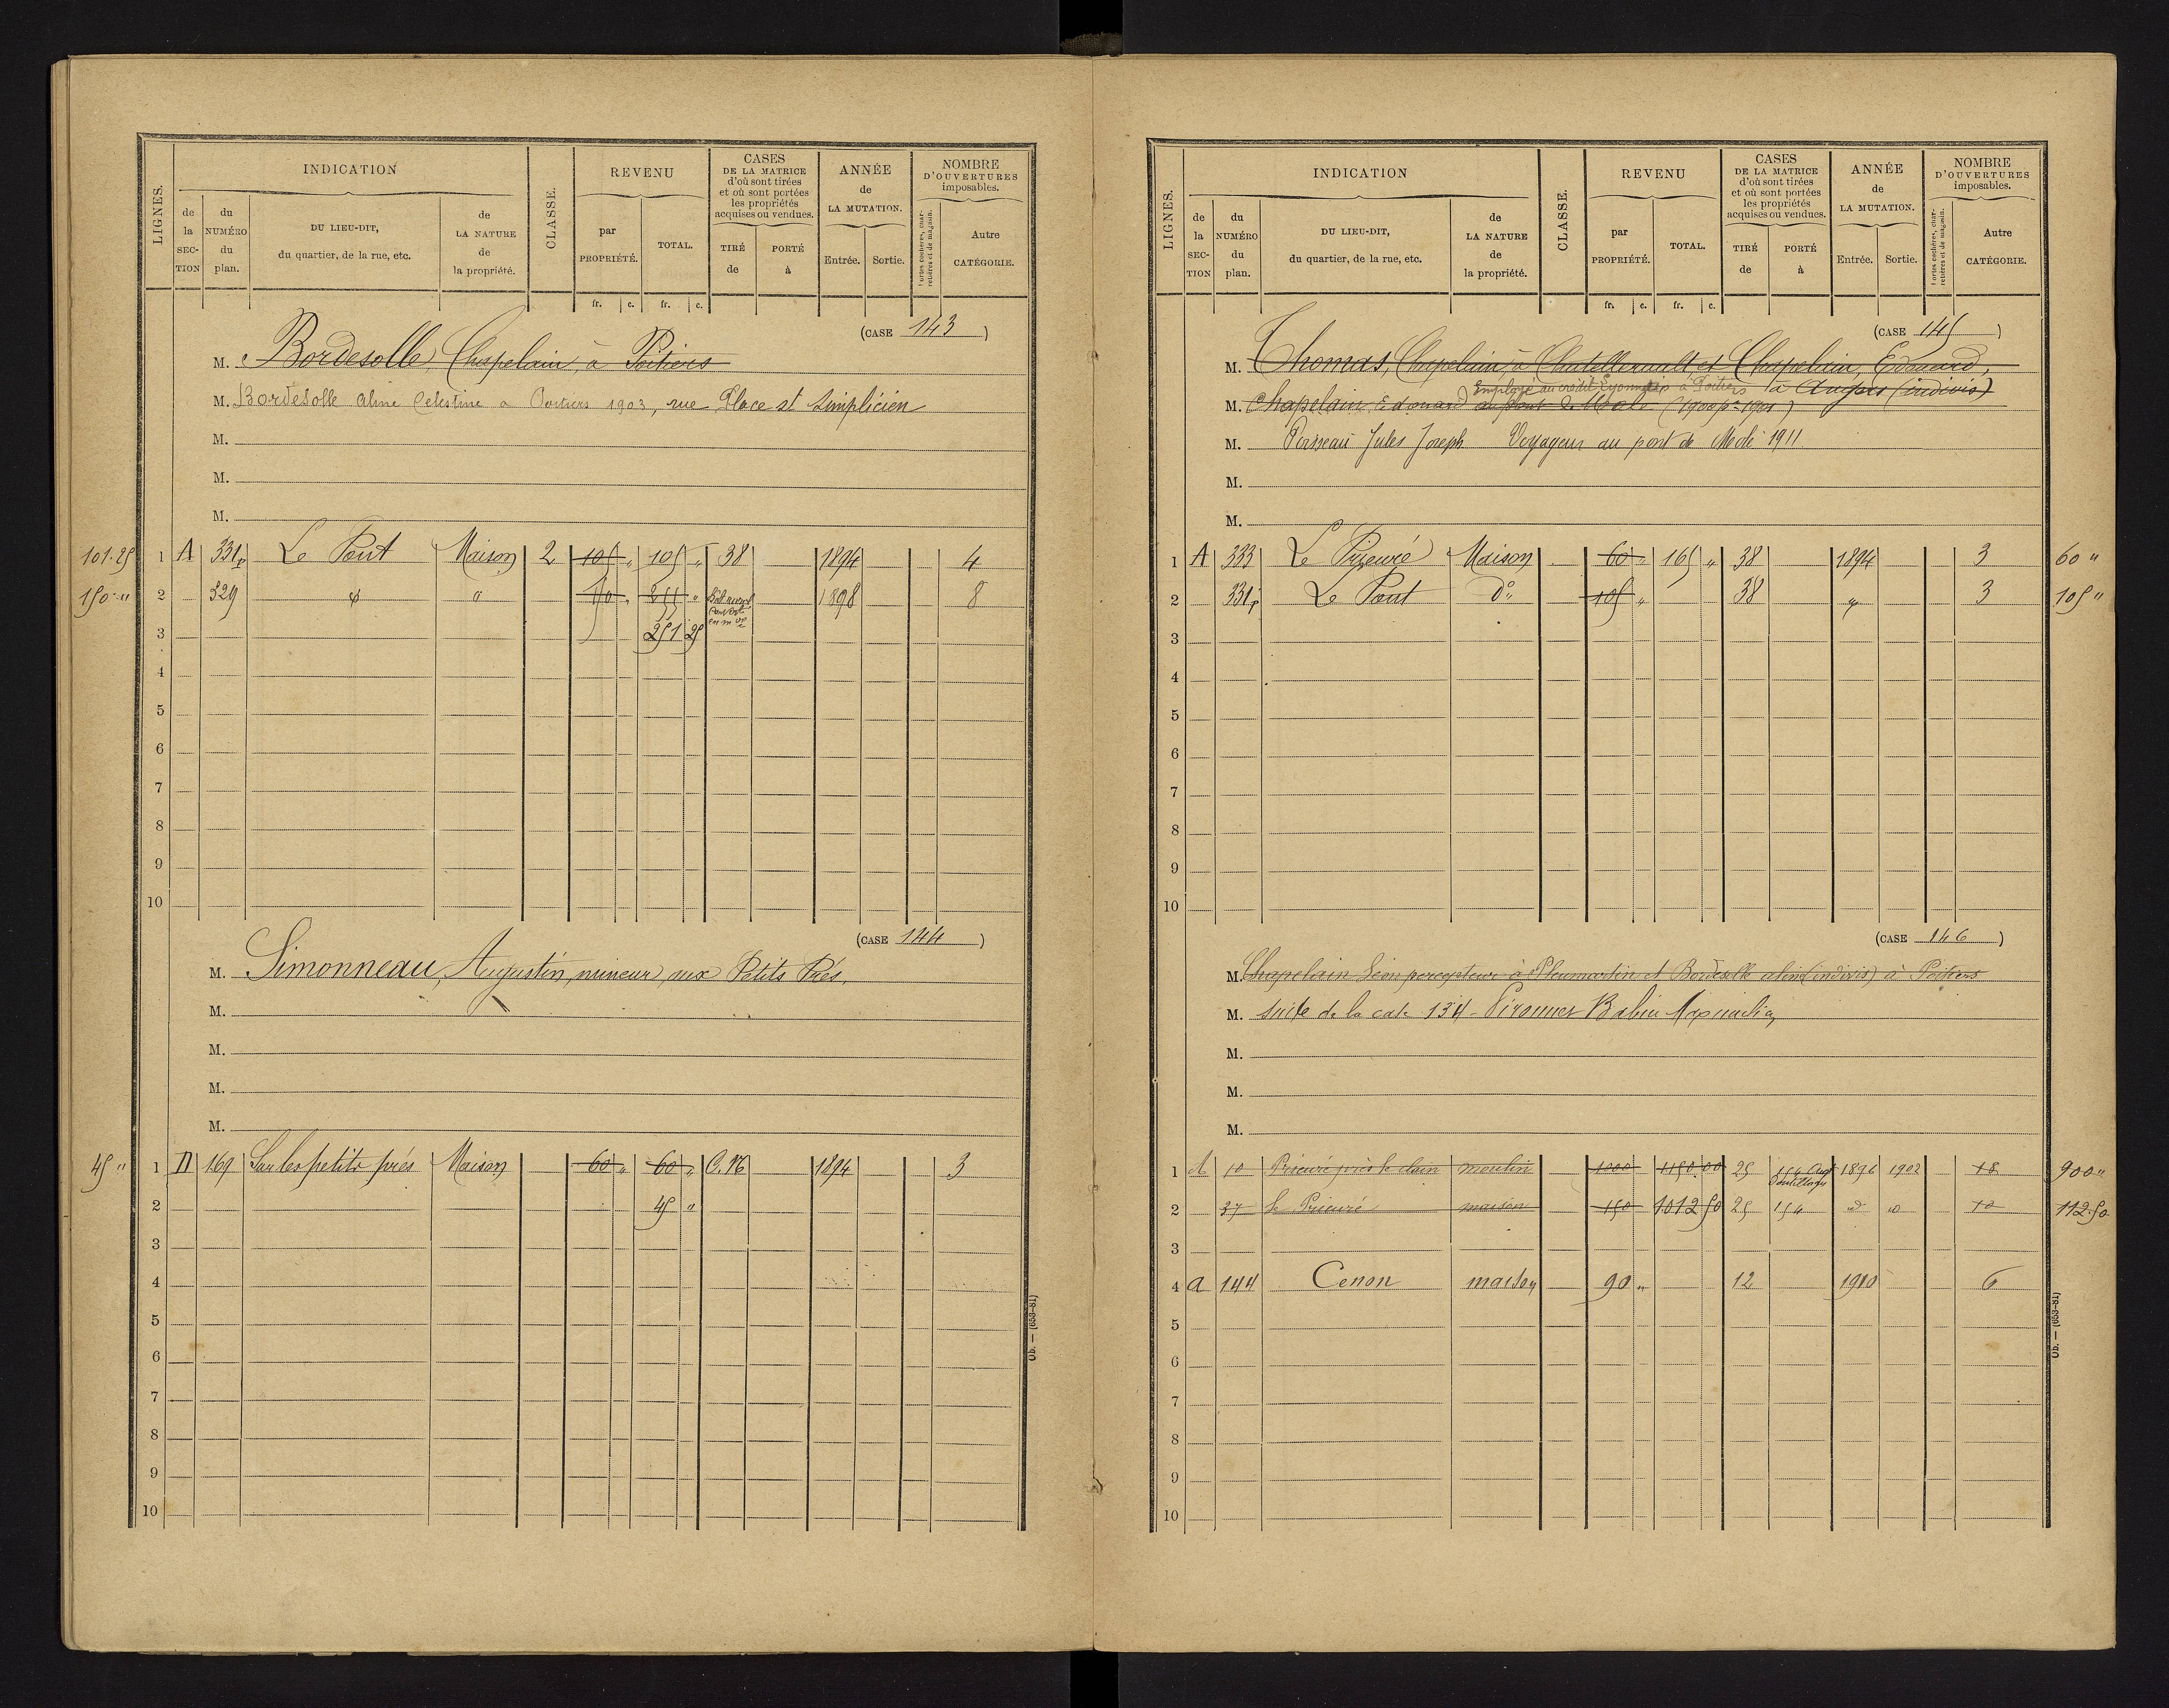 LIGNES.
INDICATION
de la SECTION
du NUMÉRO du plan.
DU LIEU-DIT, du quartier, de la rue, etc.
de LA NATURE de la propriété.
CLASSE.
REVENU
par PROPRIÉTÉ.
TOTAL.
fr. c. fr. c.
CASES DE LA MATRICE d'où sont tirées et où sont portées les propriétés acquises ou vendues.
TIRÉ de
PORTÉ à
ANNÉE de LA MUTATION.
Entrée. Sortie.
NOMBRE D'OUVERTURES imposables.
Portes cochères, charretières et de magasin.
Autre CATÉGORIE.
(CASE 143)
M. Bordesolle, Chapelain, à Poitiers
M. Bordesolle Aline Celestine a Poitiers 1903, rue Place st Simplicien
M.
M.
M.
101.25 1 A 331p Le Pont Maison 2 105 " 105 " 38 1894 4
150 " 2 329 " " 150 " 255 " 1898 8
3 251 25
4
5
6
7
8
9
10
(CASE 144)
M. Simonneau, Augustin, mineur, aux Petits Prés.
M.
M.
M.
M.
45 " 1 D 169 Sur les petits prés Maison 60 " 60 " C.N 1894 3
2 45 "
3
4
5
6
7
8
9
10
Ob. — (653-81)
LIGNES.
INDICATION
de la SECTION
du NUMÉRO du plan.
DU LIEU-DIT, du quartier, de la rue, etc.
de LA NATURE de la propriété.
CLASSE.
REVENU
par PROPRIÉTÉ.
TOTAL.
fr. c. fr. c.
CASES DE LA MATRICE d'où sont tirées et où sont portées les propriétés acquises ou vendues.
TIRÉ de
PORTÉ à
ANNÉE de LA MUTATION.
Entrée. Sortie.
NOMBRE D'OUVERTURES imposables.
Portes cochères, charretières et de magasin.
Autre CATÉGORIE.
(CASE 145)
M. Thomas, Chapelain, à Chatellerault et Chapelain, Edouard,
Employé au crédit Lyonnais à Poitiers à Angers (indivis)
M. Chapelain, Edouard au pont (1900 pr 1901)
M. Jules Joseph Voyageur au pont de 1911
M.
M.
1 A 333 Le Prieuré Maison 60 " 165 " 38 1894 3 60 "
2 331p Le Pont do 105 " 38 " 3 105 "
3
4
5
6
7
8
9
10
(CASE 146)
M. Chapelain Léon percepteur à Pleumartin et Bordesolle aline (indivis) à Poitiers
M. suite de la case 134 - Babin
M.
M.
M.
1 A 10 Prieuré près le clain moulin 1000 1150 00 25 154 1896 1902 18 900 "
2 37 le Prieuré maison 150 1012 50 25 154 do do 10 112.50
3
4 a 144 Cenon maison 90 " 12 1910 6
5
6
7
8
9
10
Ob. — (653-81)